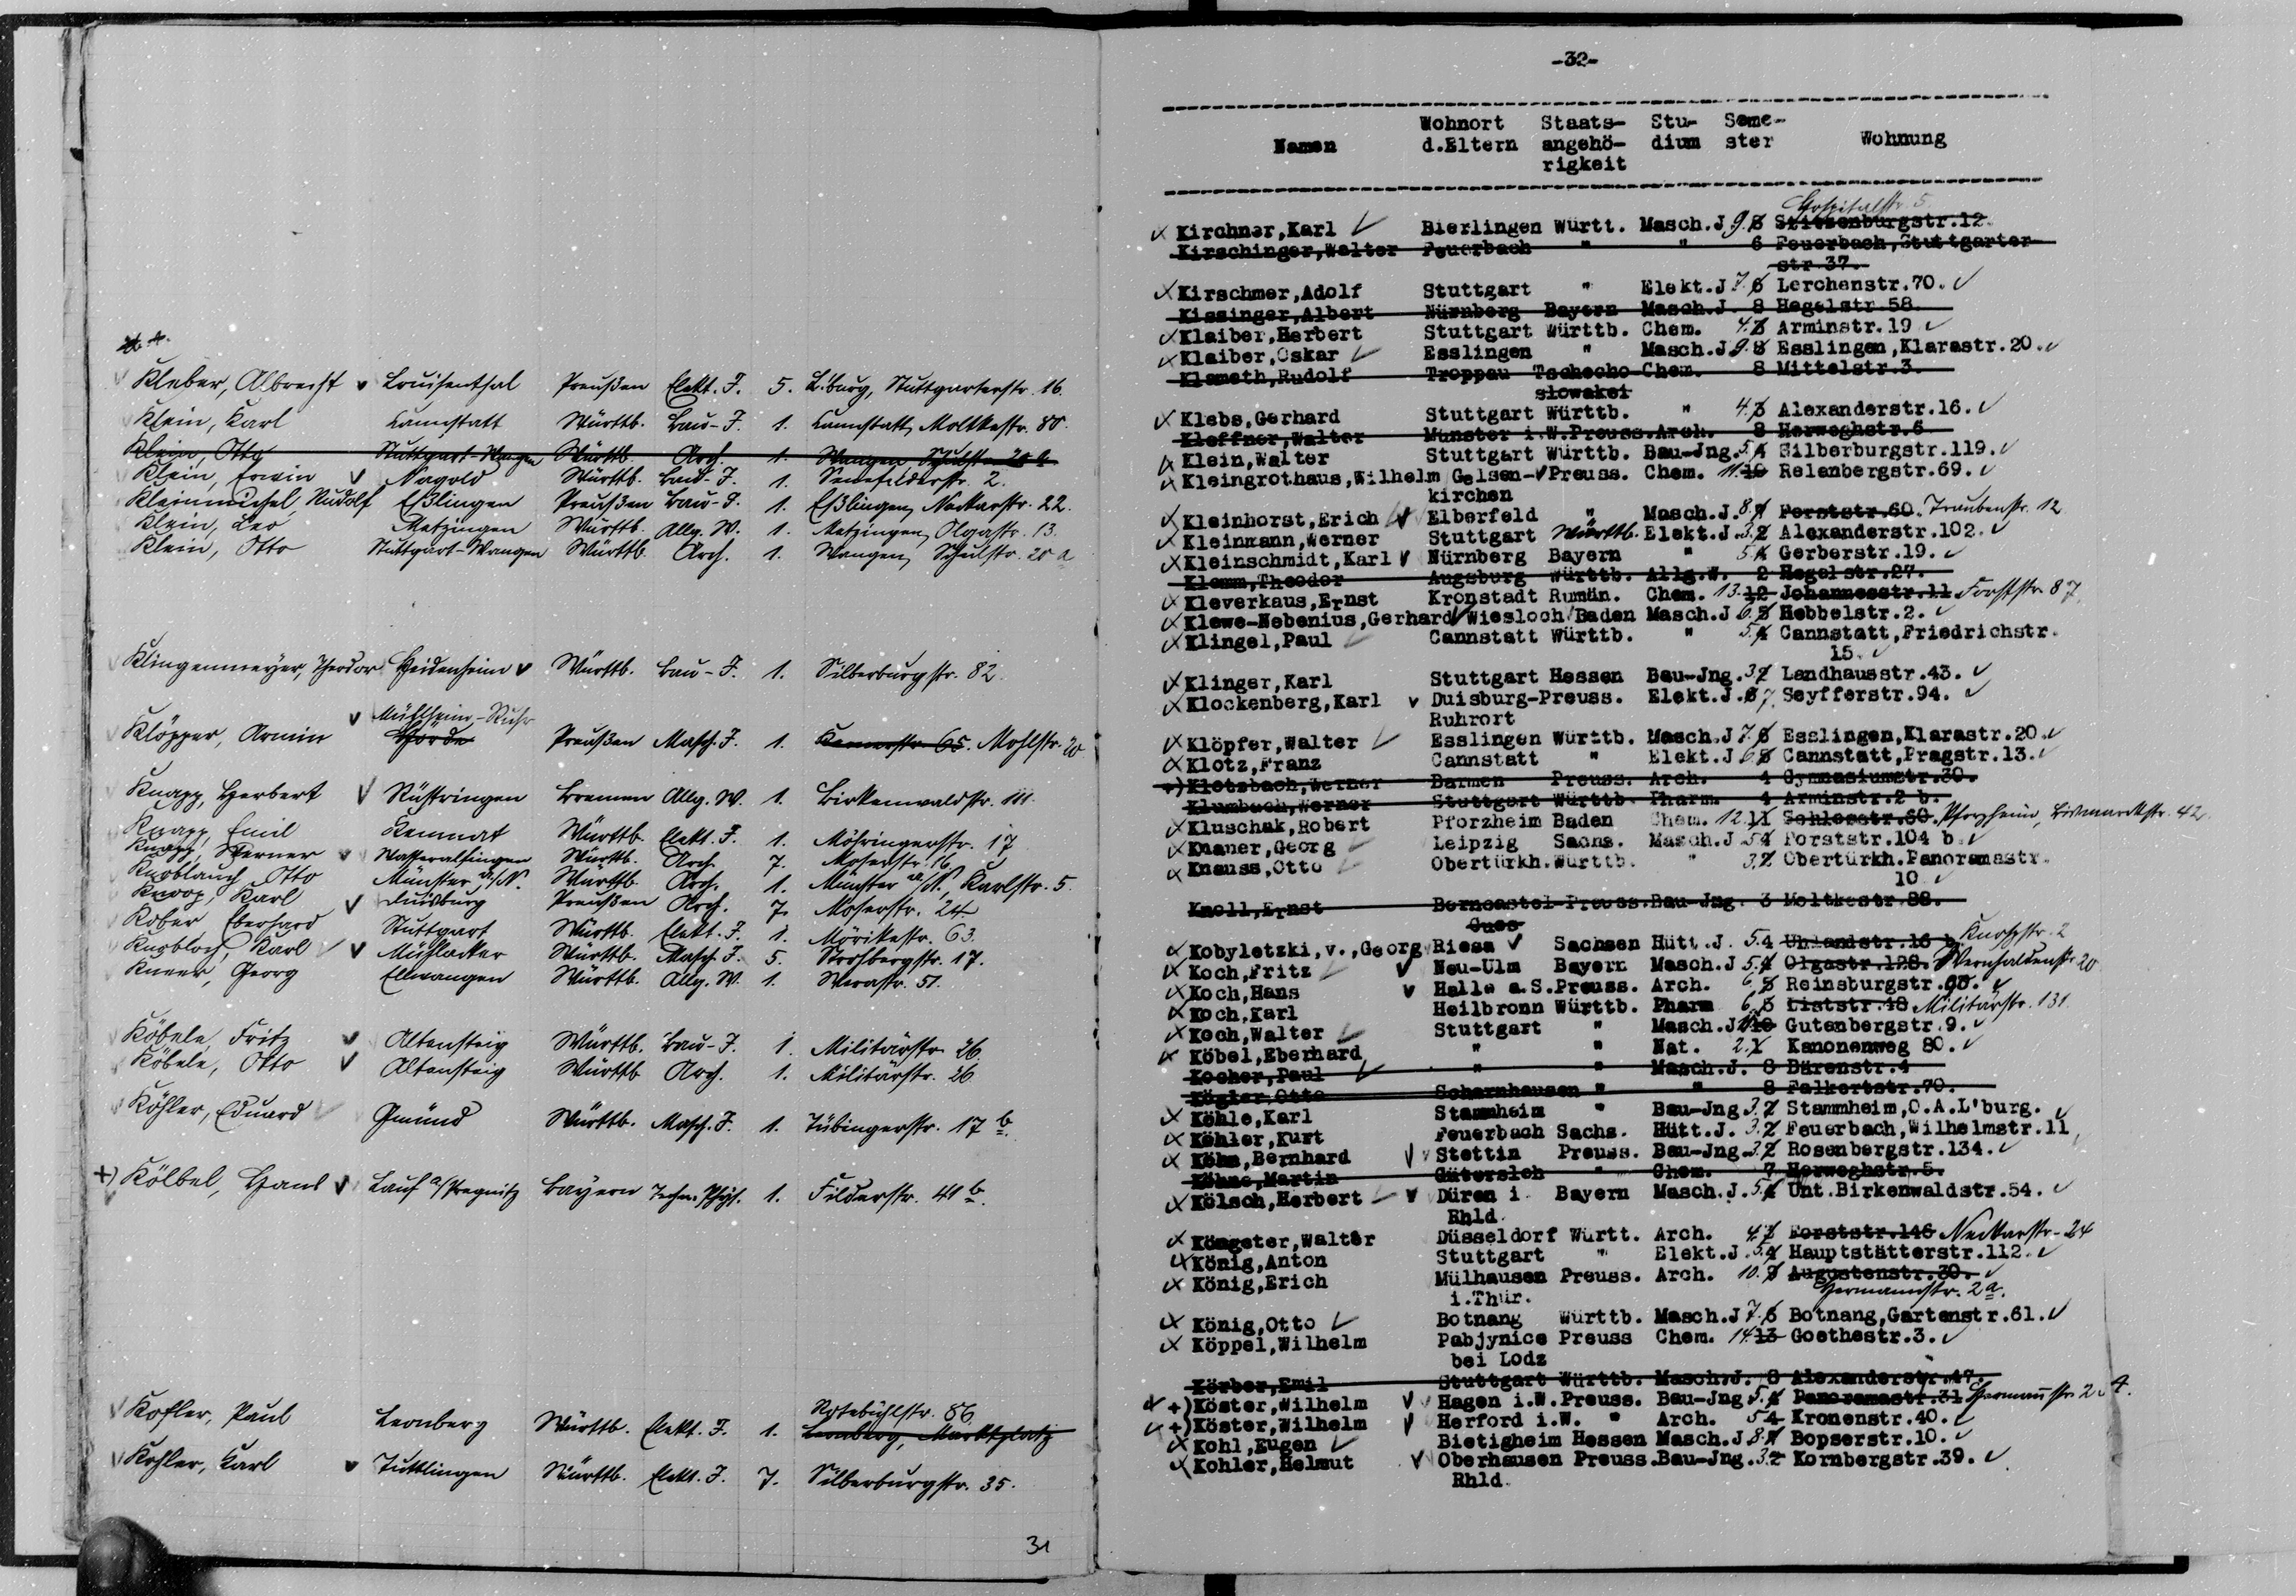 Kleber, Albrecht Louisenthal Preußen Elekt. J. 5. L'burg, Stuttgarterstr. 16.
Klein, Karl Cannstatt Württb. Bau-J. 1. Cannstatt, Moltkestr. 80.
Klein, Otto Stuttgart-Wangen Württb. Arch. 1. Wangen, Schulstr. 20 a
Klein, Erwin Nagold Württb. Bau-J. 1. Senefelderstr. 2.
Kleinmichel, Rudolf Eßlingen Preußen Bau-J. 1. Eßlingen, Neckarstr. 22.
Klein, Leo Metzingen Württb. Allg. W. 1. Metzingen, Olgastr. 13.
Klein, Otto Stuttgart-Wangen Württb. Arch. 1. Wangen, Schulstr. 20 a
Klingenmeyer, Theodor Heidenheim Württb. Bau-J. 1. Silberburgstr. 82.
Mühlheim-Ruhr
Klöpper, Armin Hörde Preußen Masch. J. 1. Mohlstr. 20
Knapp, Herbert Rüstringen Bremen Allg. W. 1. Birkenwaldstr. 111.
Knapp, Emil Kemnat Württb. Elekt. J. 1. Möhringerstr. 17
Knapp, Werner Wasseralfingen Württb. Arch. 7. Moserstr. 16
Knoblauch, Otto Münster a/N. Württb. Arch. 1. Münster a/N., Karlstr. 5.
Knoop, Karl Duisburg Preußen Arch. 7. Moserstr. 24
Kober, Eberhard Stuttgart Württb. Elekt. J. 1. Mörikestr. 63.
Knobloch, Karl Mühlacker Württb. Masch. J. 5. Strohbergstr. 17.
Kneer, Georg Ellwangen Württb. Allg. W. 1. Werastr. 51.
Köbele, Fritz Altensteig Württb. Bau-J. 1. Militärstr. 26.
Köbele, Otto Altensteig Württb. Arch. 1. Militärstr. 26
Köhler, Eduard Gmünd Württb. Masch. J. 1. Tübingerstr. 17 b.
+) Kölbel, Hans Lauf a/Pegnitz Bayern Techn. Phys. 1. Filderstr. 41 b.
Rotebühlstr. 86.
Kohler, Paul Leonberg Württb. Elekt. J. 1. Leonberg, Marktplatz
Kohler, Karl Tuttlingen Württb. Elekt. J. 7. Silberburgstr. 35.
31
-32-
Wohnort Staats- Stu- Seme-
Namen d.Eltern angehö- dium ster Wohnung
rigkeit
Hospitalstr. 5.
Kirchner,Karl Bierlingen Württ. Masch.J 9. 8 Stitzenburgstr.12.
Kirschinger,Walter Feuerbach " " 6 Feuerbach,Stuttgarter-
str.37.
Kirschmer,Adolf Stuttgart " Elekt.J 7. 6 Lerchenstr.70.
Kissinger,Albert Nürnberg Bayern Masch.J. 8 Hegelstr.58.
Klaiber,Herbert Stuttgart Württb. Chem. 4. 3 Arminstr.19
Klaiber,Oskar Esslingen " Masch.J 9. 8 Esslingen,Klarastr.20.
Klameth,Rudolf Troppau Tschecho- Chem. 8 Mittelstr.3.
slowakei
Klebs,Gerhard Stuttgart Württb. " 4. 3 Alexanderstr.16.
Kleffner,Walter Münster i.W.Preuss.Arch. 8 Herweghstr.6.
Klein,Walter Stuttgart Württb. Bau-Jng. 5. 4 Silberburgstr.119.
Kleingrothaus,Wilhelm Gelsen- Preuss. Chem. 11. 10 Relenbergstr.69.
kirchen
Kleinhorst,Erich Elberfeld " Masch.J. 8. 7 Forststr.60. Traubenstr. 12
Kleinmann,Werner Stuttgart Württb. Elekt.J. 3. 2 Alexanderstr.102.
Kleinschmidt,Karl Nürnberg Bayern " 5. 4 Gerberstr.19.
Klemm,Theodor Augsburg Württb. Allg.W. 2 Hegelstr.27.
Kleverkaus,Ernst Kronstadt Rumän. Chem. 13. 12 Johannesstr.11 Forststr. 87.
Klewe-Nebenius,Gerhard Wiesloch Baden Masch.J 6. 5 Hebbelstr.2.
Klingel,Paul Cannstatt Württb. " 5. 4 Cannstatt,Friedrichstr.
15.
Klinger,Karl Stuttgart Hessen Bau-Jng. 3. 2 Landhausstr.43.
Klockenberg,Karl Duisburg-Preuss. Elekt.J. 6 7. Seyfferstr.94.
Ruhrort
Klöpfer,Walter Esslingen Württb. Masch.J 7. 6 Esslingen,Klarastr.20.
Klotz,Franz Cannstatt " Elekt.J 6. 5 Cannstatt,Pragstr.13.
+)Klotzbach,Werner Barmen Preuss. Arch. 4 Gymnasiumstr.39.
Klumbach,Werner Stuttgart Württb. Pharm. 4 Arminstr.2 b.
Kluschak,Robert Pforzheim Baden Chem. 12. 11 Pforzheim, Bismarckstr. 42.
Knauer,Georg Leipzig Sachs. Masch.J 5. 4 Forststr.104 b.
Knauss,Otto Obertürkh.Württb. " 3. 2 Obertürkh.Panoramastr.
10
Knoll,Ernst Berncastel-Preuss.Bau-Jng. 3 Moltkestr.88.
Cues
Kobyletzki,v.,Georg Riesa Sachsen Hütt.J. 5. 4 Uhlandstr.16 b Knospstr. 2
Koch,Fritz Neu-Ulm Bayern Masch.J 5. 4 Olgastr.128. Wernhaldenstr. 20
Koch,Hans Halle a.S.Preuss. Arch. 6. 5 Reinsburgstr.
Koch,Karl Heilbronn Württb. Pharm 6. 5 Liststr.48 Militärstr. 131.
Koch,Walter Stuttgart " Masch.J 10 Gutenbergstr.9.
Köbel,Eberhard " " Nat. 2. 1 Kanonenweg 80.
Kocher,Paul " " Masch.J. 8 Bärenstr.4
Kögler,Otto Scharnhausen " " 8 Falkertstr.70.
Köhle,Karl Stammheim " Bau-Jng 3. 2 Stammheim,O.A.L'burg.
Köhler,Kurt Feuerbach Sachs. Hütt.J. 3. 2 Feuerbach,Wilhelmstr.11
Köhn,Bernhard Stettin Preuss. Bau-Jng. 3. 2 Rosenbergstr.134.
Köhne,Martin Gütersloh " Chem. 7 Herweghstr.5.
Kölsch,Herbert Düren i. Bayern Masch.J. 5. 4 Unt.Birkenwaldstr.54.
Rhld.
Köngeter,Walter Düsseldorf Württ. Arch. 4. 3 Forststr.146 Neckarstr. 24
König,Anton Stuttgart " Elekt.J. 5. 4 Hauptstätterstr.112.
König,Erich Mülhausen Preuss. Arch. 10. 9 Augustenstr.30.
i.Thür. Hermannstr. 2a.
König,Otto Botnang Württb. Masch.J 7. 6 Botnang,Gartenstr.61.
Köppel,Wilhelm Pabjynice Preuss Chem. 14. 13 Goethestr.3.
bei Lodz
Körber,Emil Stuttgart Württb. Masch.J. 8 Alexanderstr.47.
+)Köster,Wilhelm Hagen i.W.Preuss. Bau-Jng 5. 4 Panoramastr.31 Hermannstr. 2
+)Köster,Wilhelm Herford i.W. " Arch. 5 4 Kronenstr.40.
Kohl,Eugen Bietigheim Hessen Masch.J 8. 7 Bopserstr.10.
Kohler,Helmut Oberhausen Preuss.Bau-Jng. 3. 2 Kornbergstr.39.
Rhld.